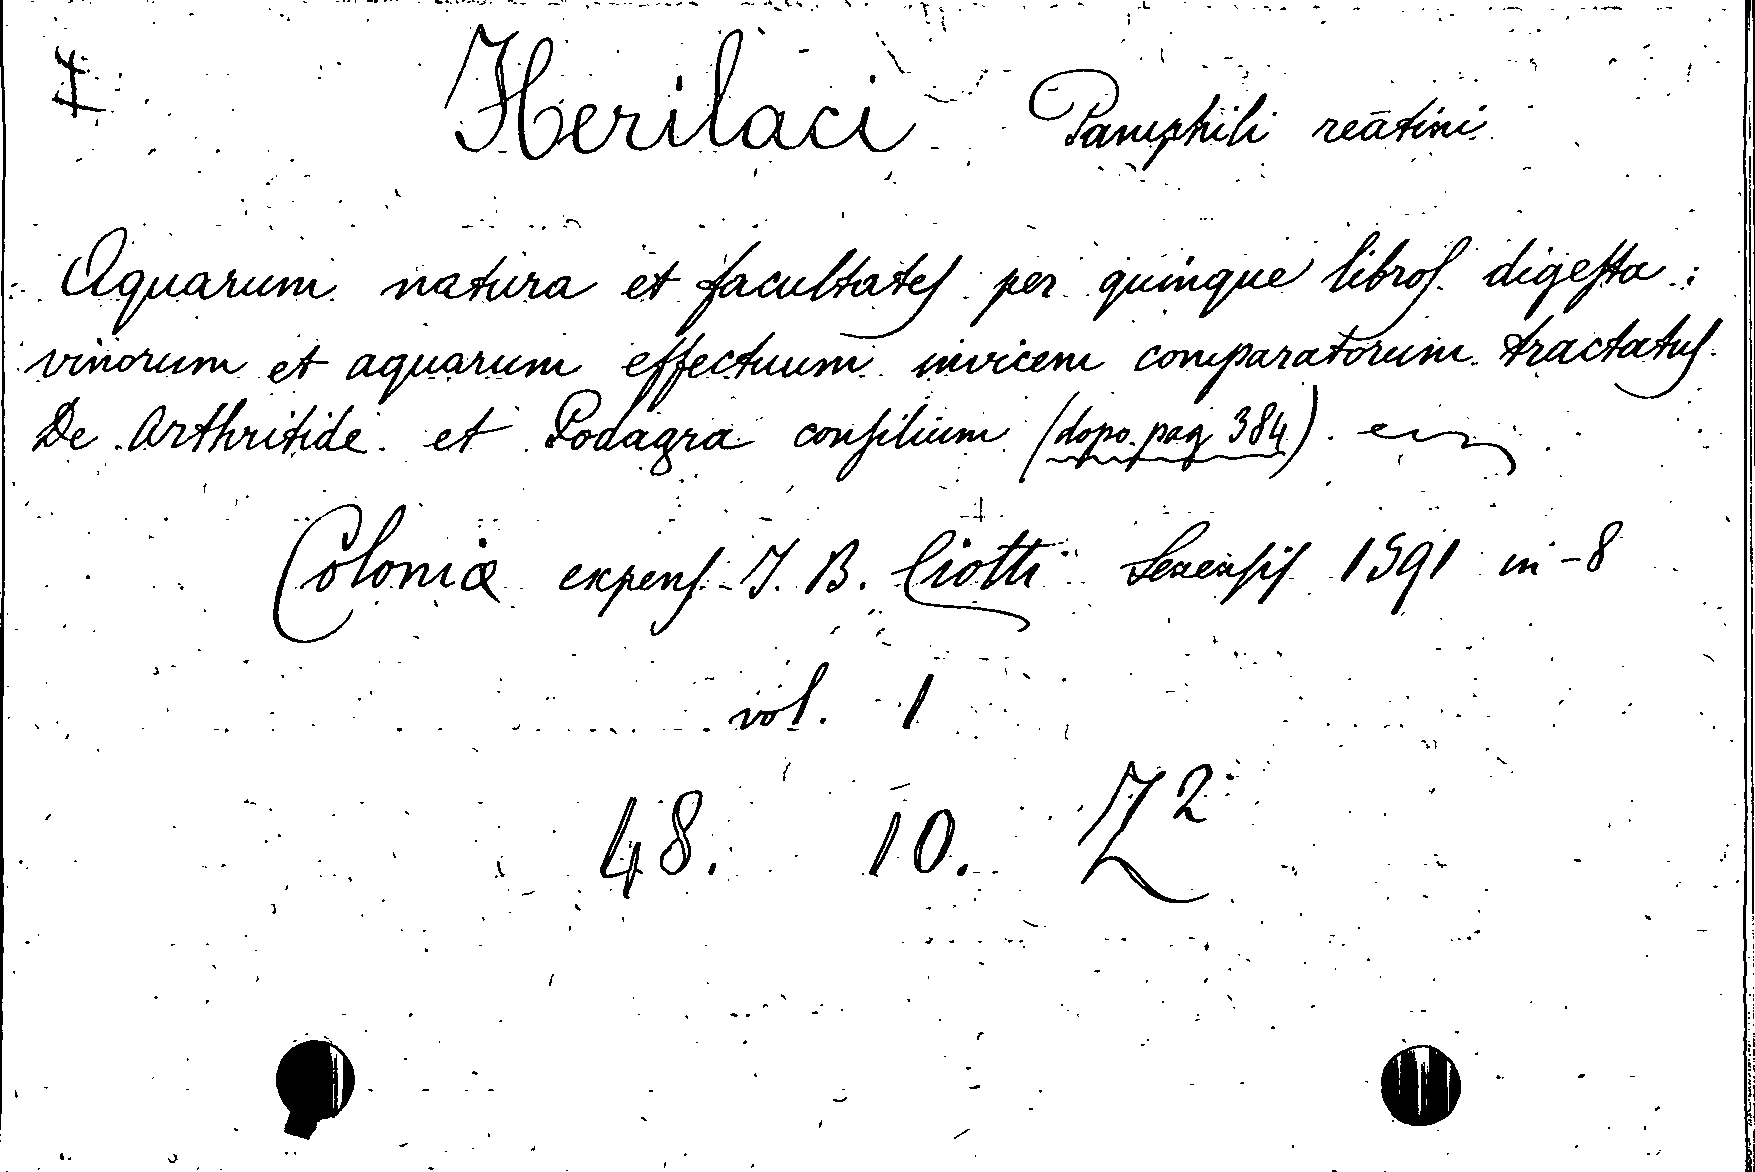 Herilaci Pamphili reātini
Aquarum natura et facultates per quinque libros digesta :
vinorum et aquarum effectuum invicem comparatorum tractatus.
De Arthritide et Podagra consilium (dopo pag 384).
Coloniæ expens. J. B. Ciotti Senensis 1591 in-8
vol. 1
48. 10. Z²